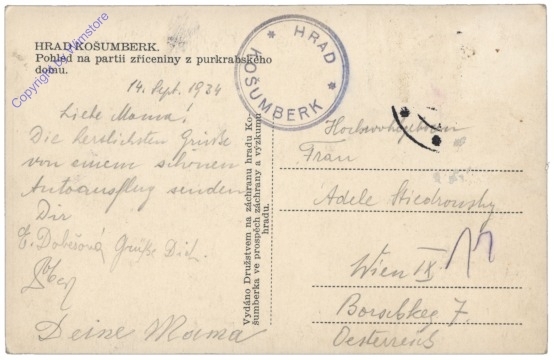 Copyright by Wimstore
HRAD KOŠUMBERK.
Pohled na partii zříceniny z purkrabského
domu.
HRAD
KOŠUMBERK
14. Sept. 1934
Liebe Mama!
Die herzlichsten Grüße
von einem schönen
Autoausflug senden
Dir
Grüße Dich
Deine Mama
Vydáno Družstvem na záchranu hradu Ko-
šumberka ve prospěch záchrany a výzkumu
hradu.
Hochwohlgeboren
Frau
Adele
Wien IX
7.
Oesterreich